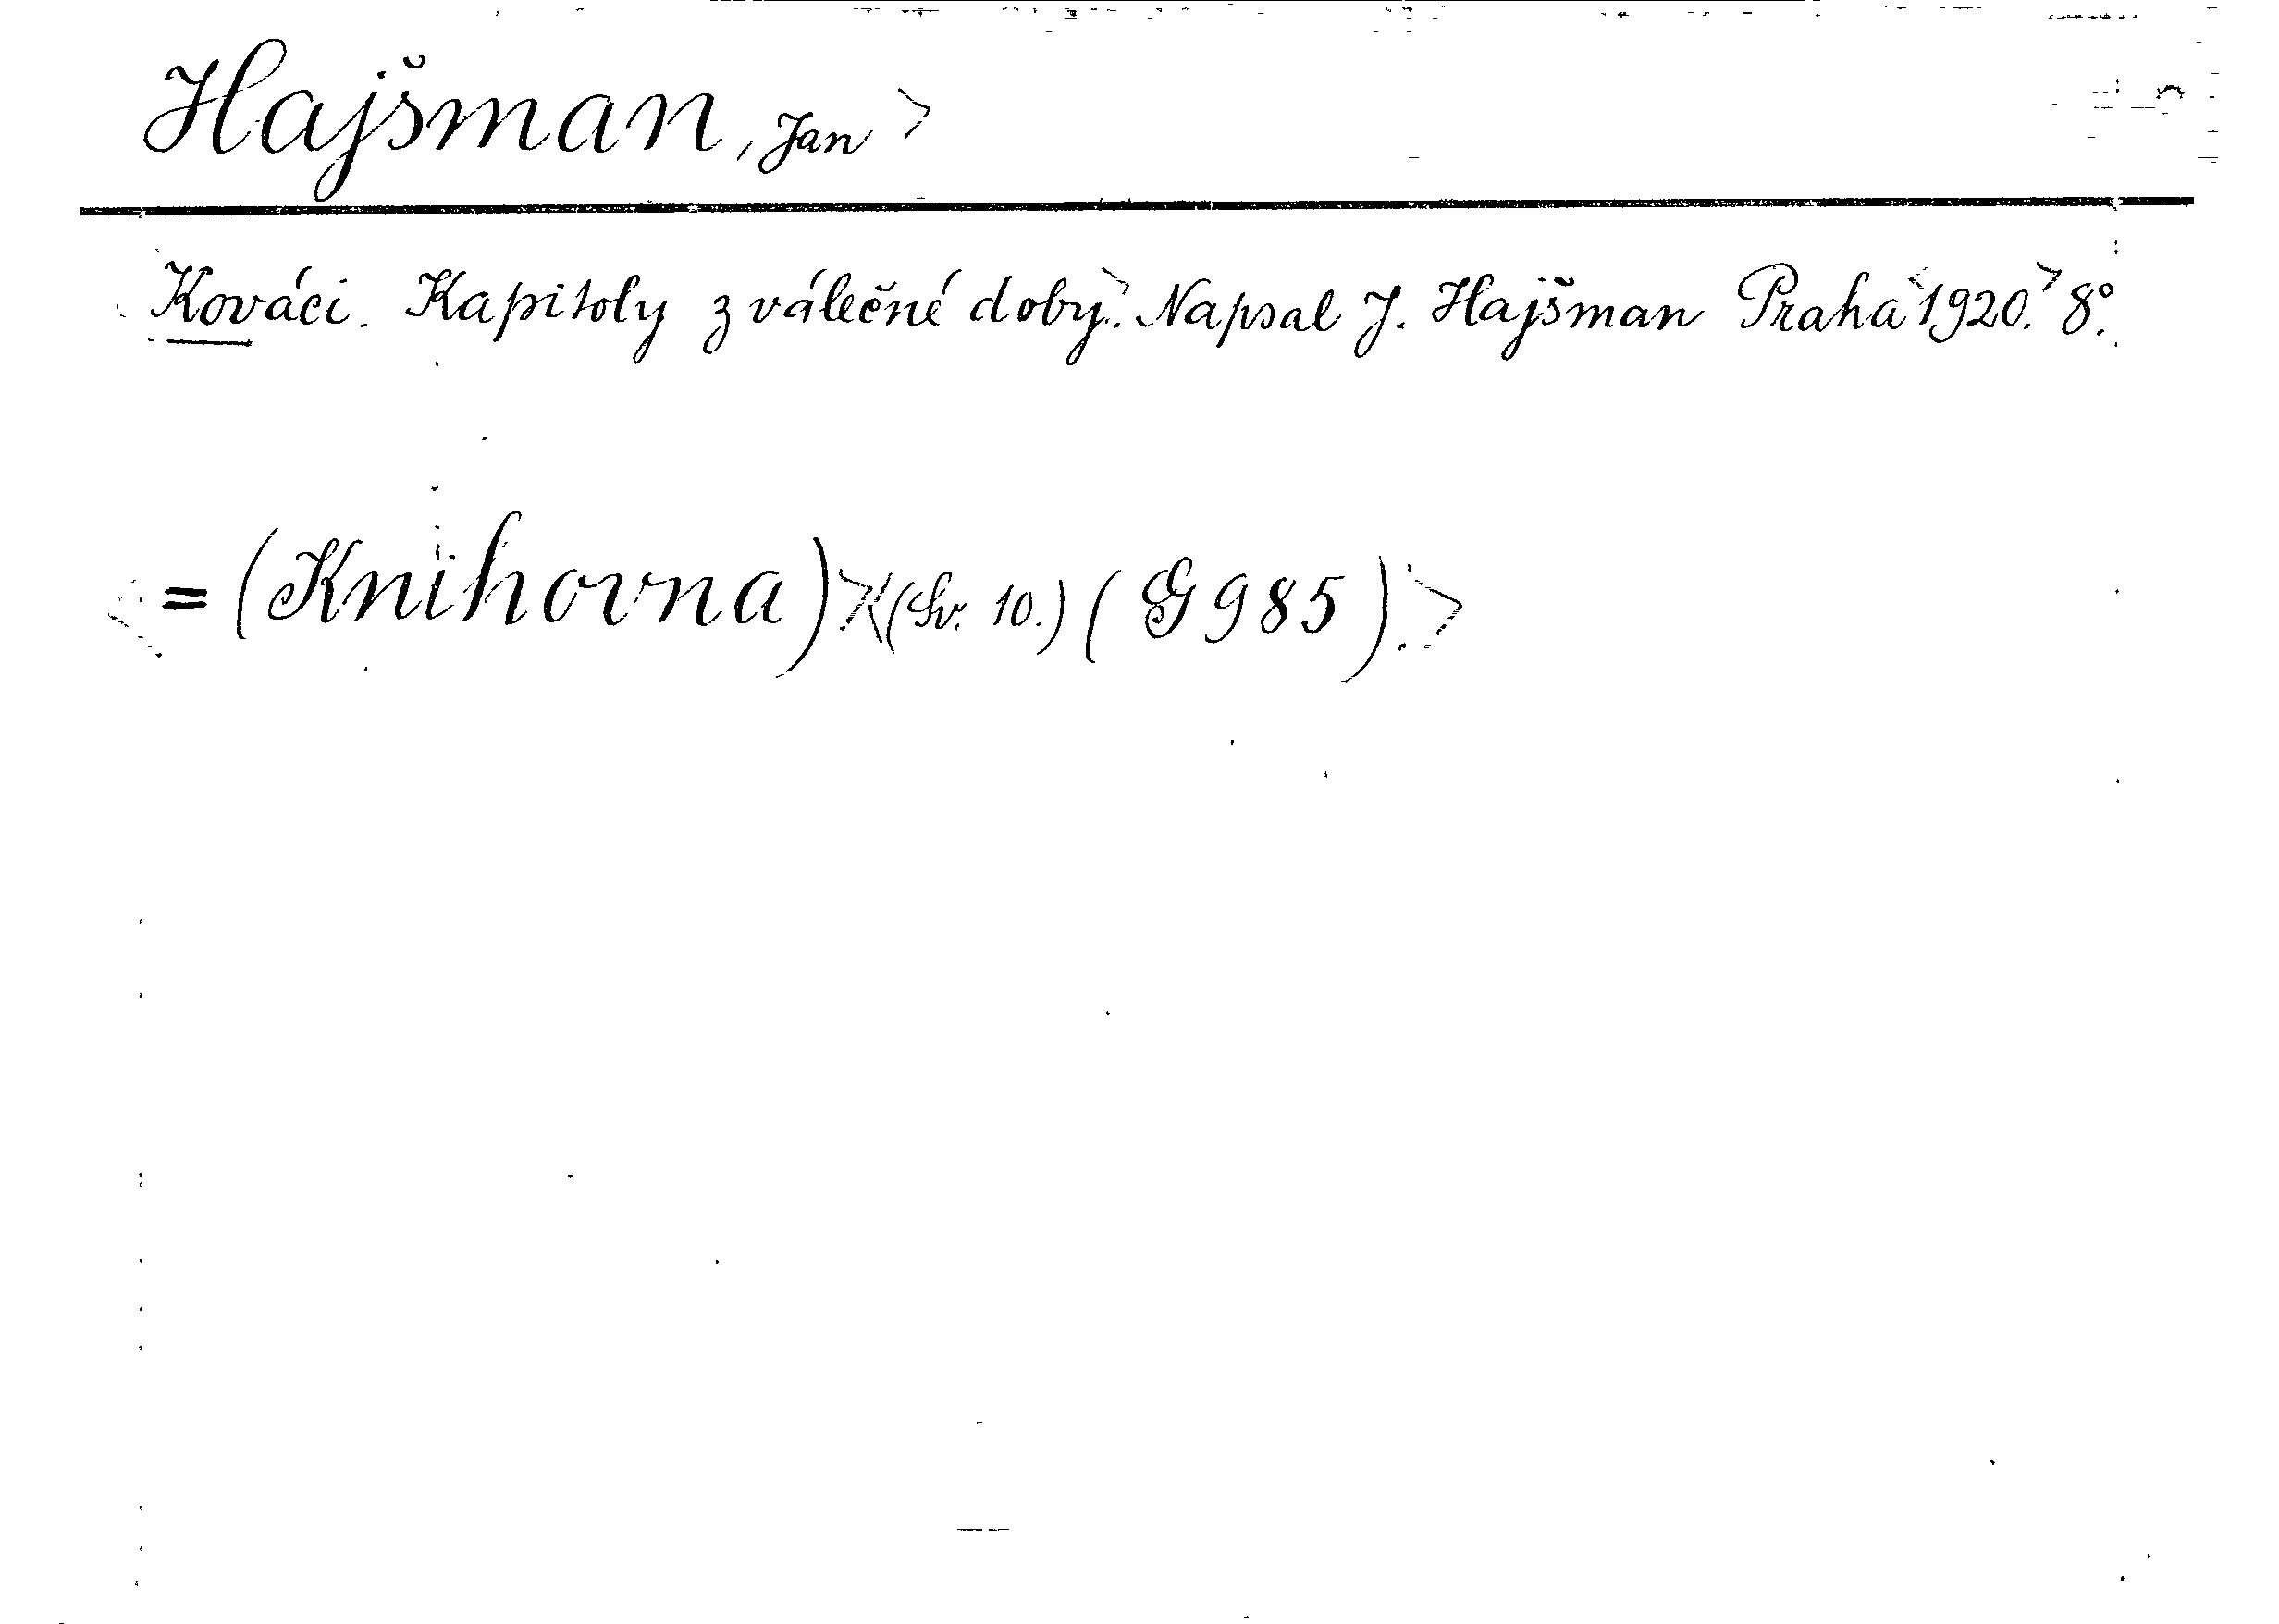 Hajšman, Jan >
Kováci. Kapitoly z válečné doby.> Napsal J. Hajšman Praha <1920.> 8°.
<= (Knihovna)><(Sv. 10.) (G 985).>